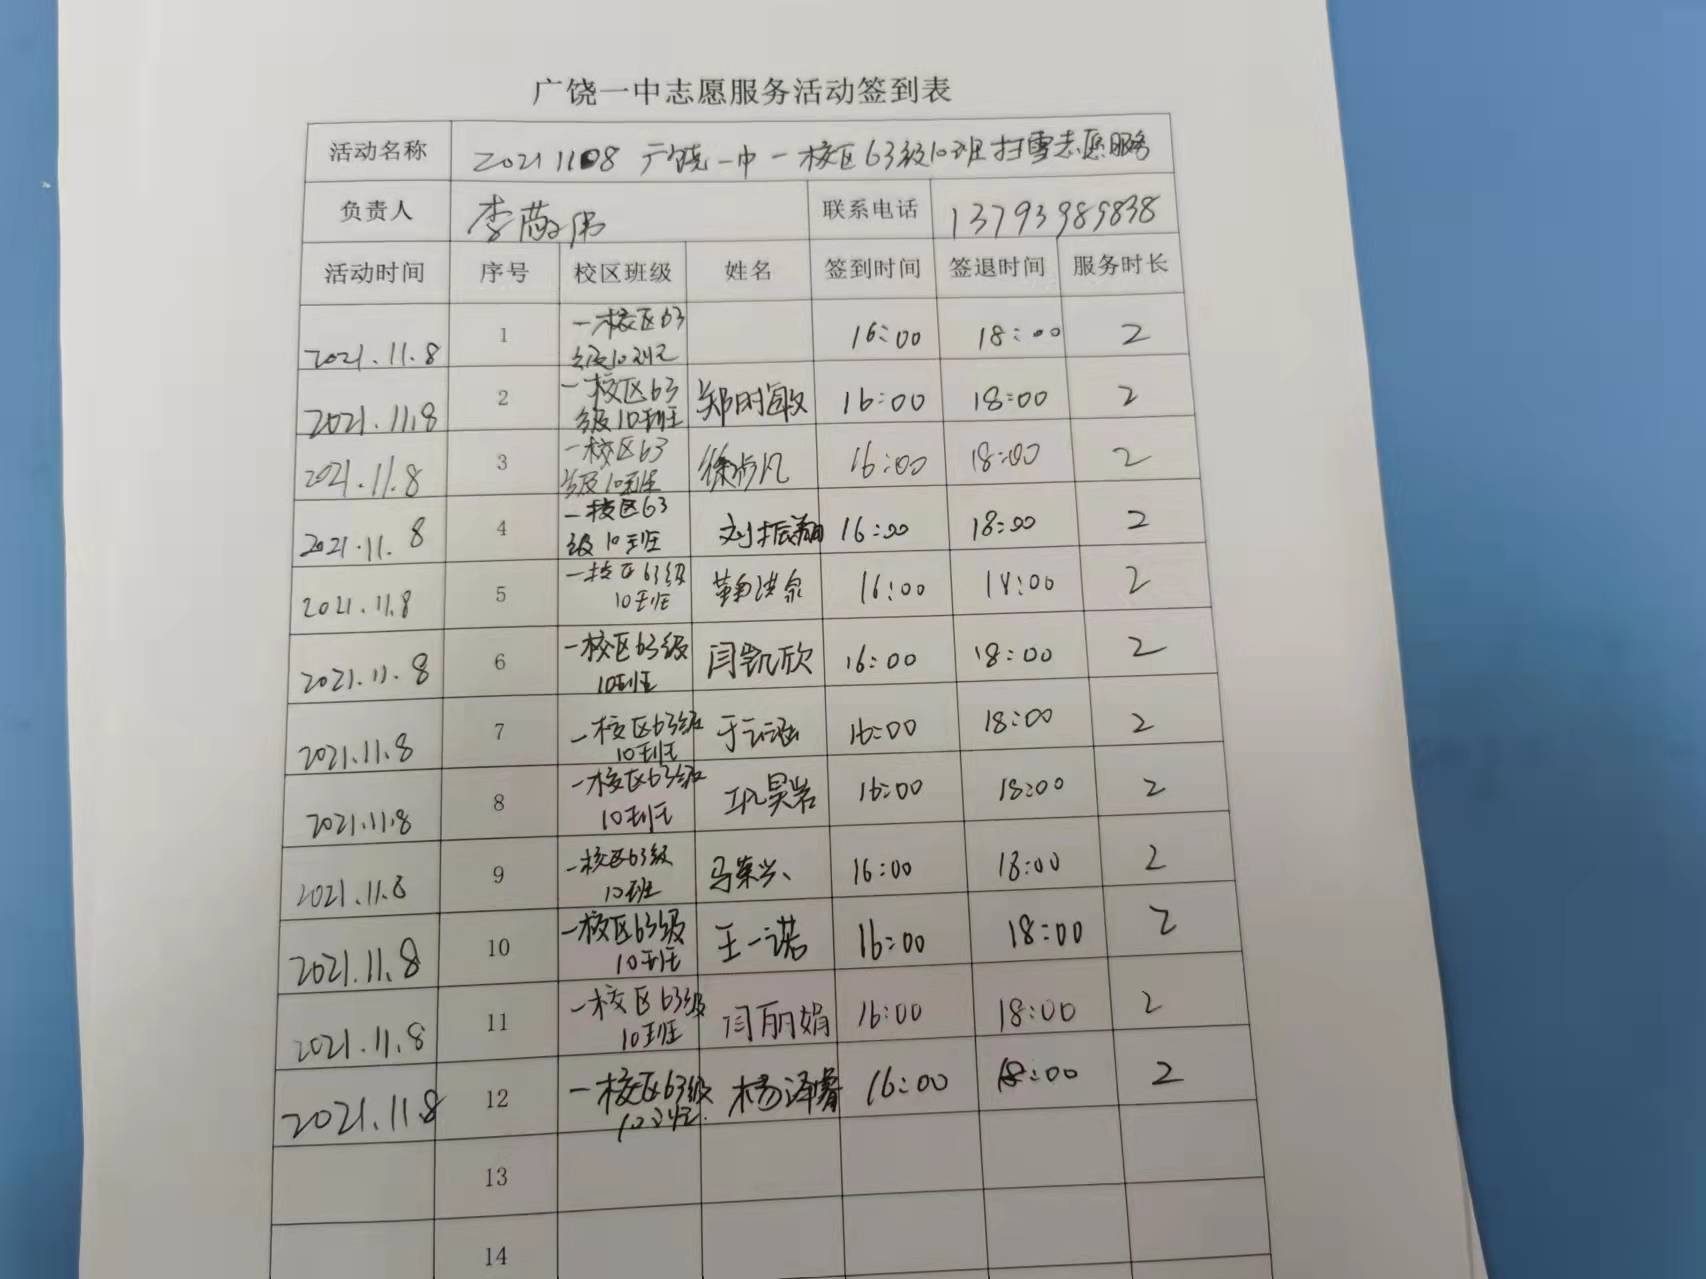 广饶一中志愿服务活动签到表
活动名称 20211108 广饶一中一校区63级10班扫雪志愿服务
负责人 李 联系电话 13793989838
活动时间 序号 校区班级 姓名 签到时间 签退时间 服务时长
2021.11.8 1 一校区63 16:00 18:00 2
级10班
2021.11.8 2 一校区63 郑时敏 16:00 18:00 2
级10班
2021.11.8 3 一校区63 徐尚凡 16:00 18:00 2
级10班
2021.11.8 4 一校区63 刘振翔 16:00 18:00 2
级10班
2021.11.8 5 一校区63级 16:00 18:00 2
10班
2021.11.8 6 一校区63级 闫凯欣 16:00 18:00 2
10班
2021.11.8 7 一校区63级 于云涵 16:00 18:00 2
10班
2021.11.8 8 一校区63级 巩昊岩 16:00 18:00 2
10班
2021.11.8 9 一校区63级 马荣兴 16:00 18:00 2
10班
2021.11.8 10 一校区63级 王一诺 16:00 18:00 2
10班
2021.11.8 11 一校区63级 闫丽娟 16:00 18:00 2
10班
2021.11.8 12 一校区63级 杨泽睿 16:00 18:00 2
10班
13
14